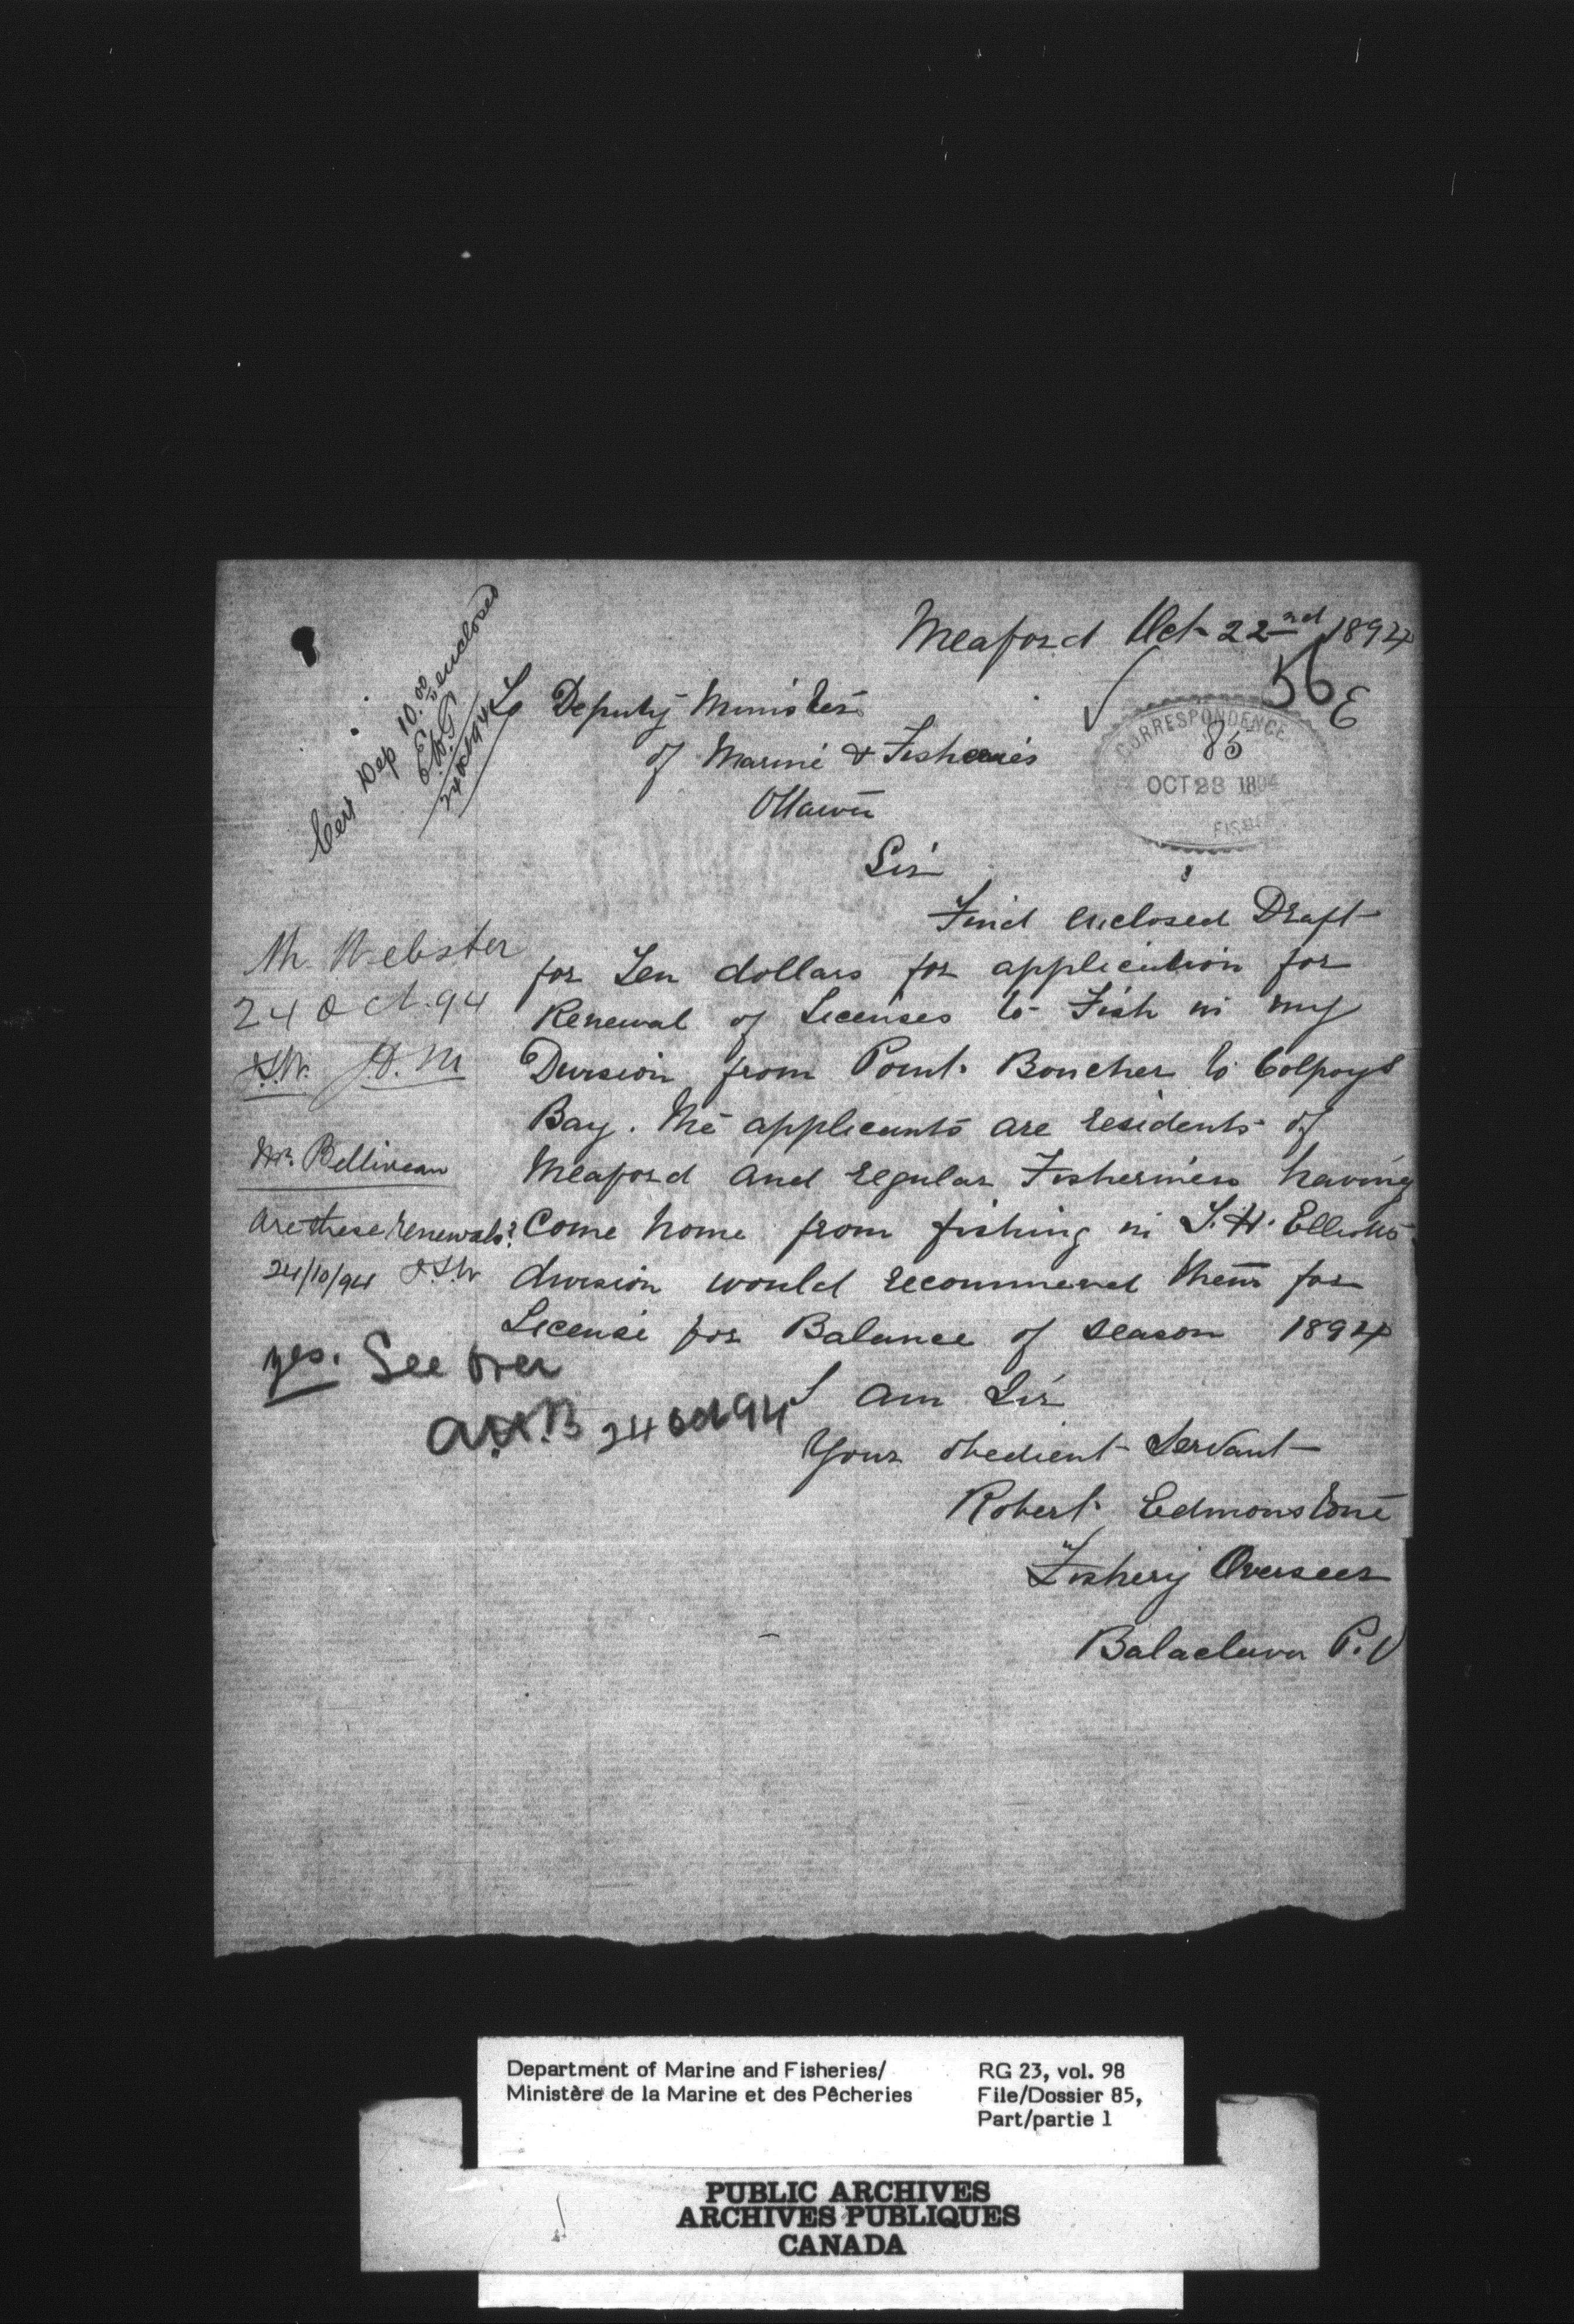 Meaford Oct 22nd 1894
56 E
Cert Dep 10.00 enclosed
E.W.G
24 Oct 94
To Deputy Minister
of Marine & Fisheries
Ottawa
CORRESPONDENCE
85
OCT 23 1894
FISH
Sir
Find enclosed Draft
for Ten dollars for application for
Renewal of Licenses to Fish in my
Division from Point Boucher to Colpoys
Bay. The applicants are residents of
Meaford and regular Fishermen having
Come home from fishing in T. H. Elliotts
division would recommend them for
License for Balance of season 1894
I am Sir
Your obedient Servant
Robert Edmonstone
Fishery Overseer
Balaclava P.O
Mr. Webster
24 Oct. 94
J.S.W. D.M
Mr. Belliveau
Are these renewals?
24/10/94 J.S.W
yes. See over
A.H.B 24 Oct 94
Department of Marine and Fisheries/
Ministère de la Marine et des Pêcheries
RG 23, vol. 98
File/Dossier 85,
Part/partie 1
PUBLIC ARCHIVES
ARCHIVES PUBLIQUES
CANADA